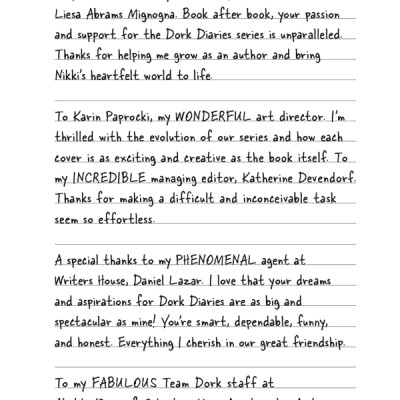 Liesa Abrams Mignogna. Book after book, your passion
and support for the Dork Diaries series is unparalleled.
Thanks for helping me grow as an author and bring
Nikki's heartfelt world to life.
To Karin Paprocki, my WONDERFUL art director. I'm
thrilled with the evolution of our series and how each
cover is as exciting and creative as the book itself. To
my INCREDIBLE managing editor, Katherine Devendorf.
Thanks for making a difficult and inconceivable task
seem so effortless.
A special thanks to my PHENOMENAL agent at
Writers House, Daniel Lazar. I love that your dreams
and aspirations for Dork Diaries are as big and
spectacular as mine! You're smart, dependable, funny,
and honest. Everything I cherish in our great friendship.
To my FABULOUS Team Dork staff at